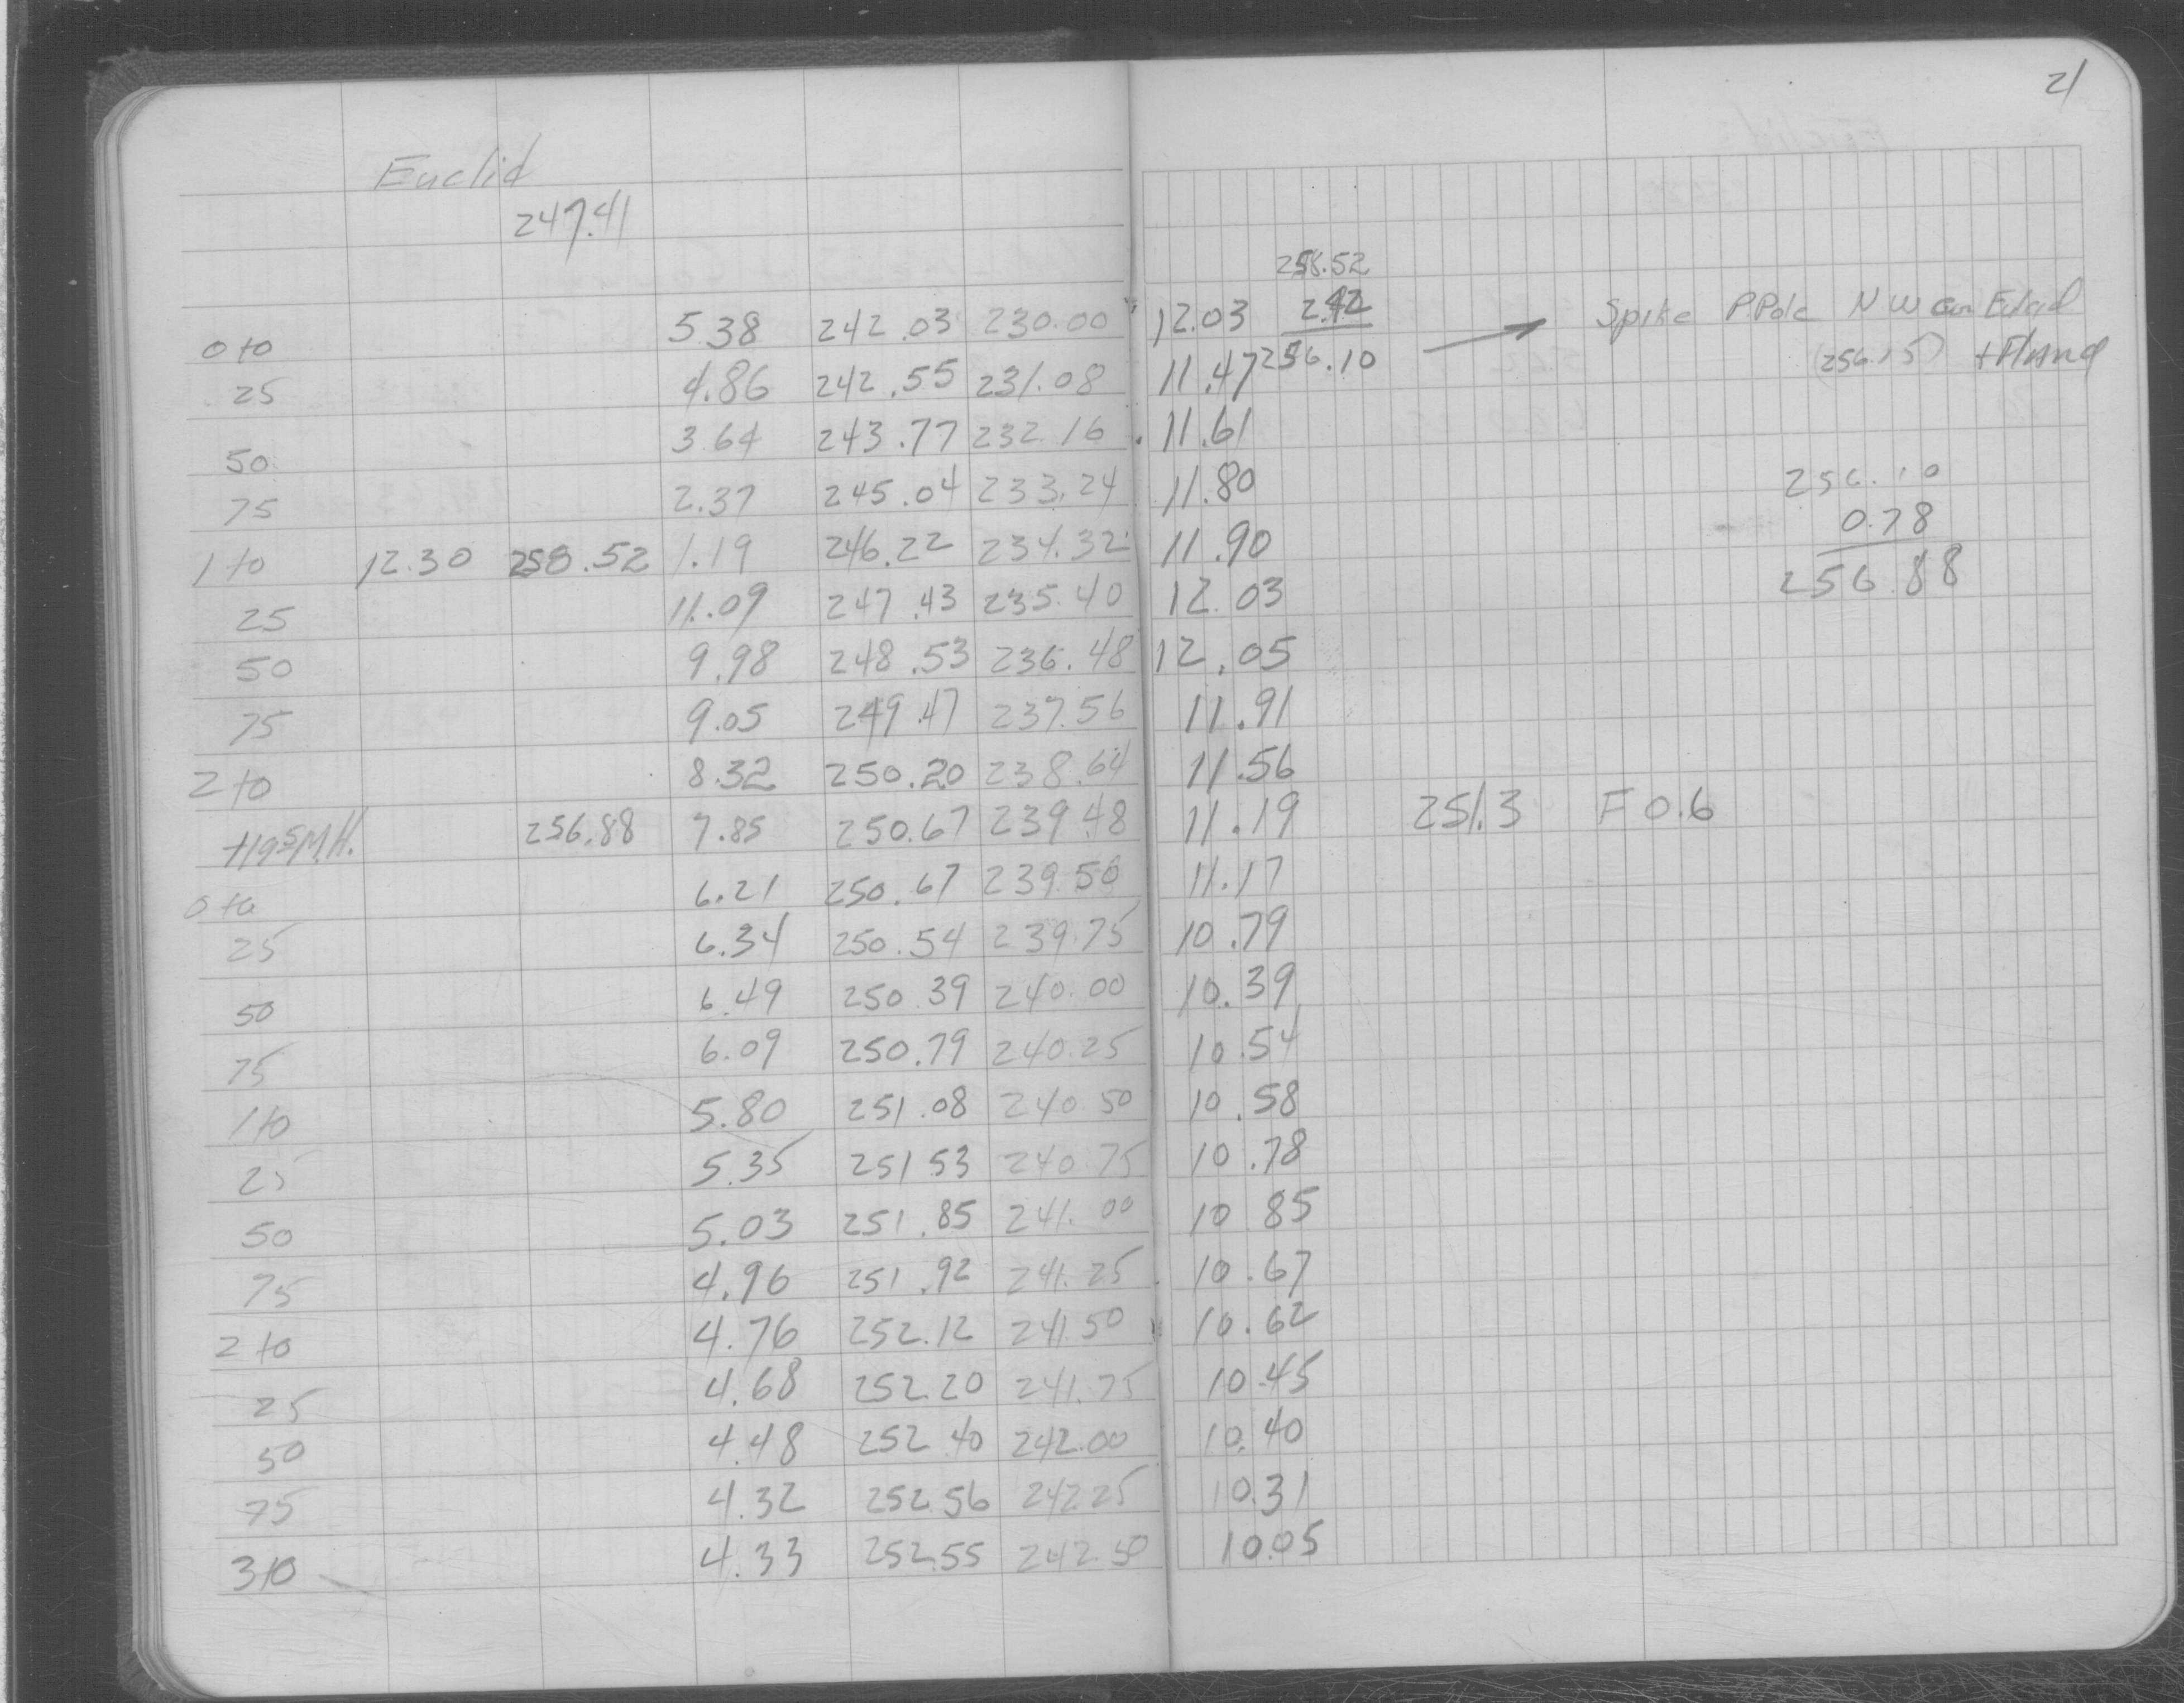 21
Euclid
247.41
258.52
0+0 5.38 242.03 230.00 12.03 2.42 Spike P.Pole N W Cor Euclid
25 4.86 242.55 231.08 11.47 256.10 (256.15)
50 3.64 243.77 232.16 11.61
75 2.37 245.04 233.24 11.80 256.10
0.78
1+0 12.30 258.52 1.19 246.22 234.32 11.90 256.88
25 11.09 247.43 235.40 12.03
50 9.98 248.53 236.48 12.05
75 9.05 249.47 237.56 11.91
2+0 8.32 250.20 238.64 11.56
+19.5 M.H. 256.88 7.85 250.67 239.48 11.19 251.3 F 0.6
0+0 6.21 250.67 239.50 11.17
25 6.34 250.54 239.75 10.79
50 6.49 250.39 240.00 10.39
75 6.09 250.79 240.25 10.54
1+0 5.80 251.08 240.50 10.58
25 5.35 251 53 240.75 10.78
50 5.03 251.85 241.00 10 85
75 4.96 251.92 241.25 10.67
2+0 4.76 252.12 241.50 10.62
25 4.68 252.20 241.75 10.45
50 4.48 252 40 242.00 10.40
75 4.32 252.56 242.25 10.31
3+0 4.33 252.55 242.50 10.05